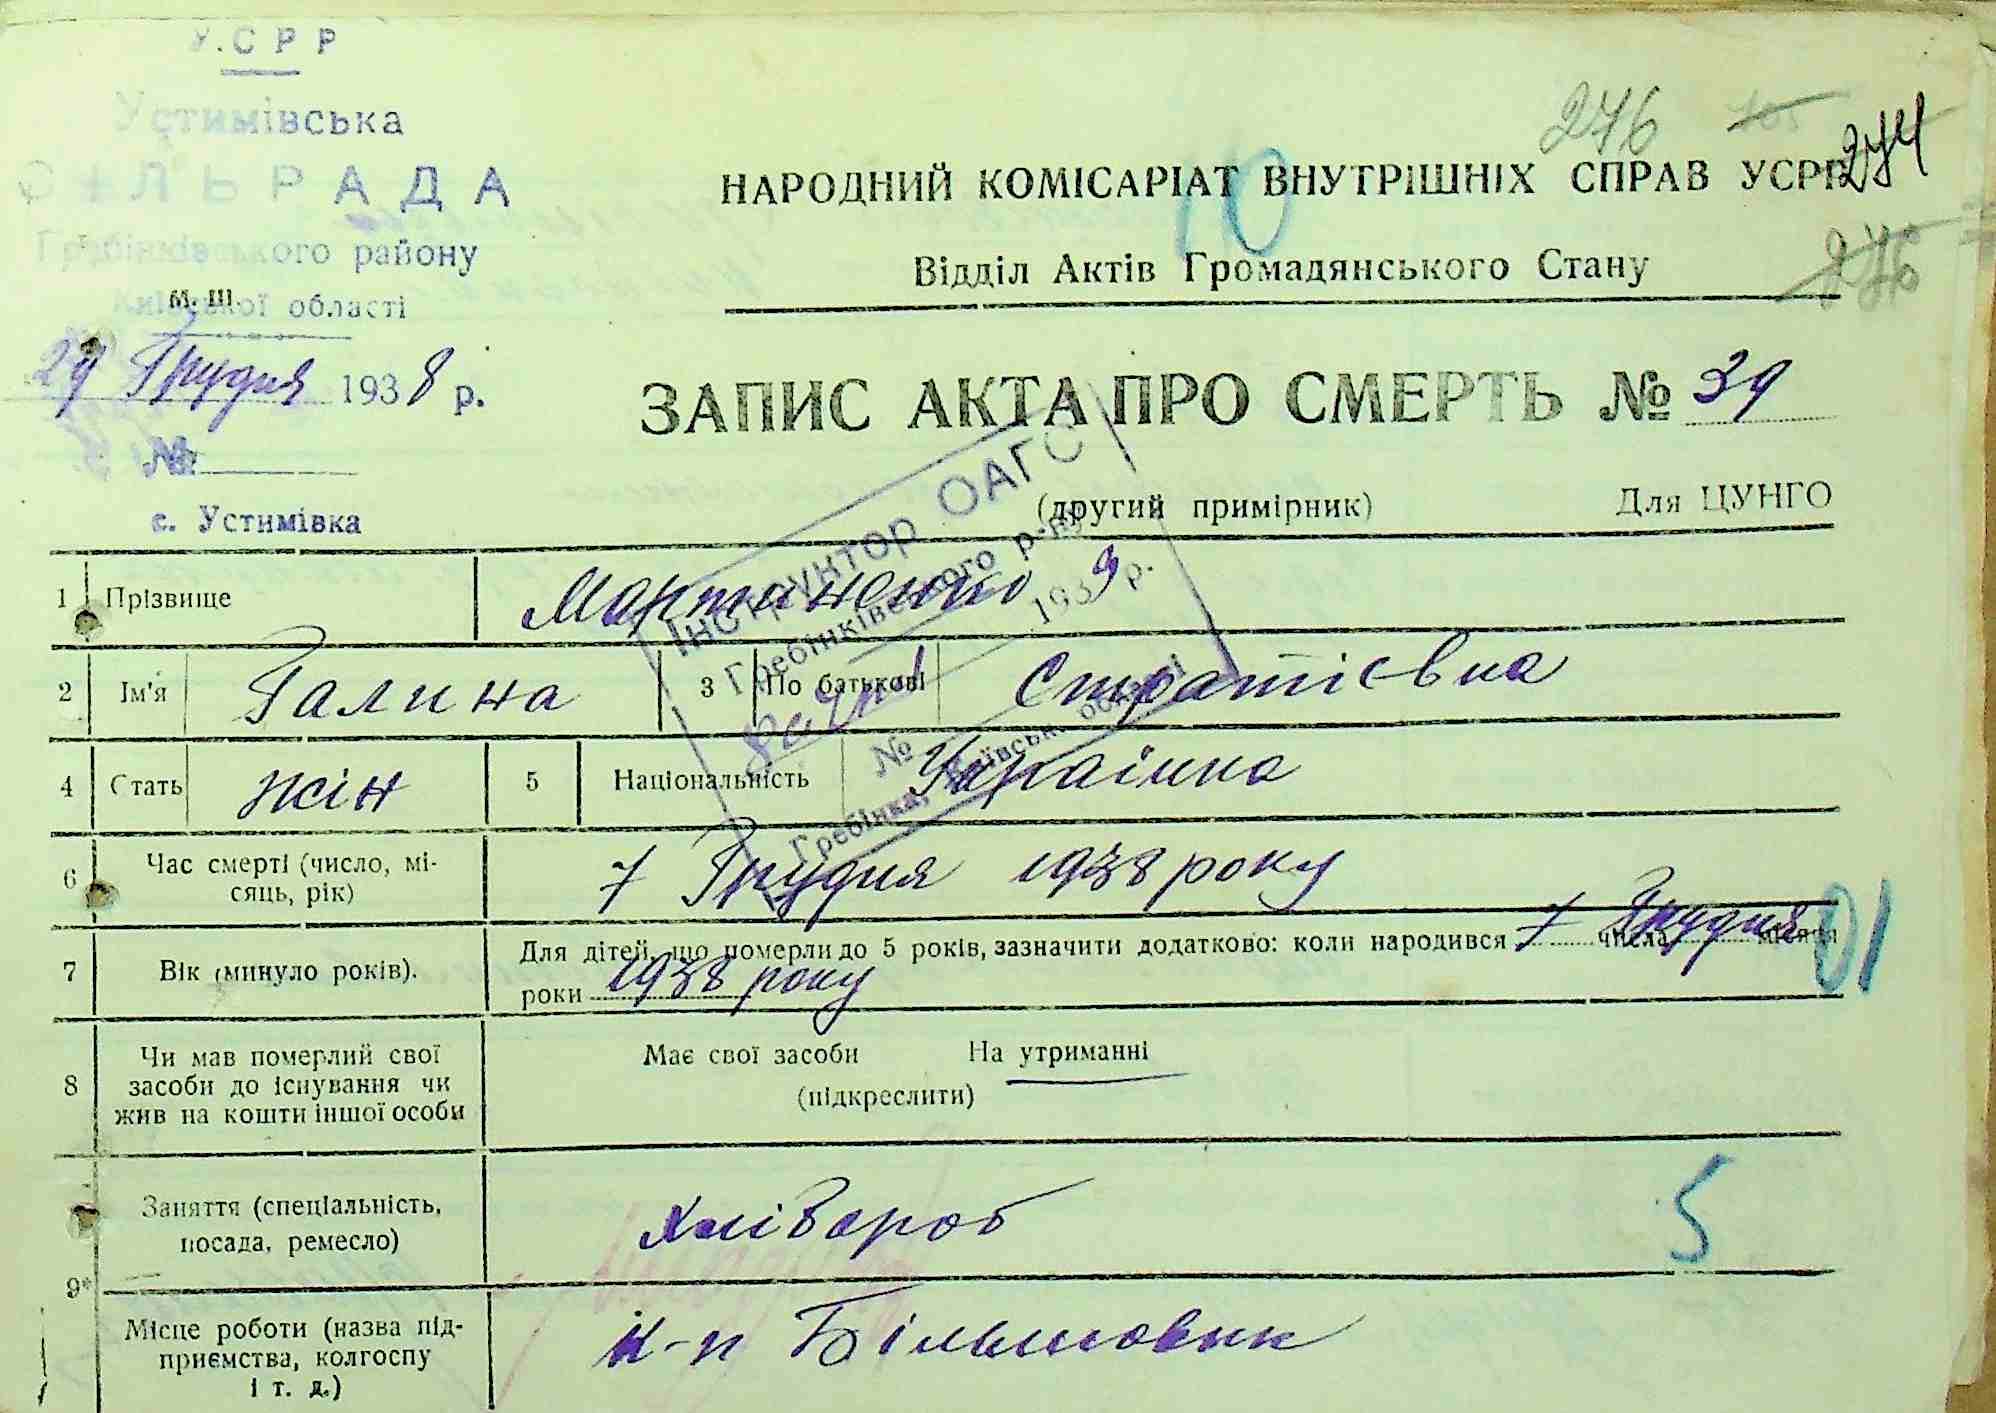 У.СРР
Устимівська
СІЛЬРАДА
Гребінківського району
Київської області
М. Ш.
29 Грудня 1938 р.
№
с. Устимівка
276 105 274
НАРОДНИЙ КОМІСАРІАТ ВНУТРІШНІХ СПРАВ УСРР
10
Відділ Актів Громадянського Стану
276
ЗАПИС АКТА ПРО СМЕРТЬ № 39
(другий примірник) Для ЦУНГО
Інструктор ОАГС
Гребінківського р-ну
1939 р.
№
Гребінка, Київськ. області
1 Прізвище Мартиненко
2 Ім'я Галина 3 По батькові Стратієвна
4 Стать жін 5 Національність Українка
6 Час смерті (число, місяць, рік) 7 Грудня 1938 року
7 Вік (минуло років). Для дітей, що померли до 5 років, зазначити додатково: коли народився 7 числа Грудня місяця
роки 1938 року
01
8 Чи мав померлий свої засоби до існування чи жив на кошти іншої особи Має свої засоби На утриманні
(підкреслити)
9* Заняття (спеціальність, посада, ремесло) Хлібороб 5
Місце роботи (назва підприємства, колгоспу і т. д.) К-п Більшовик